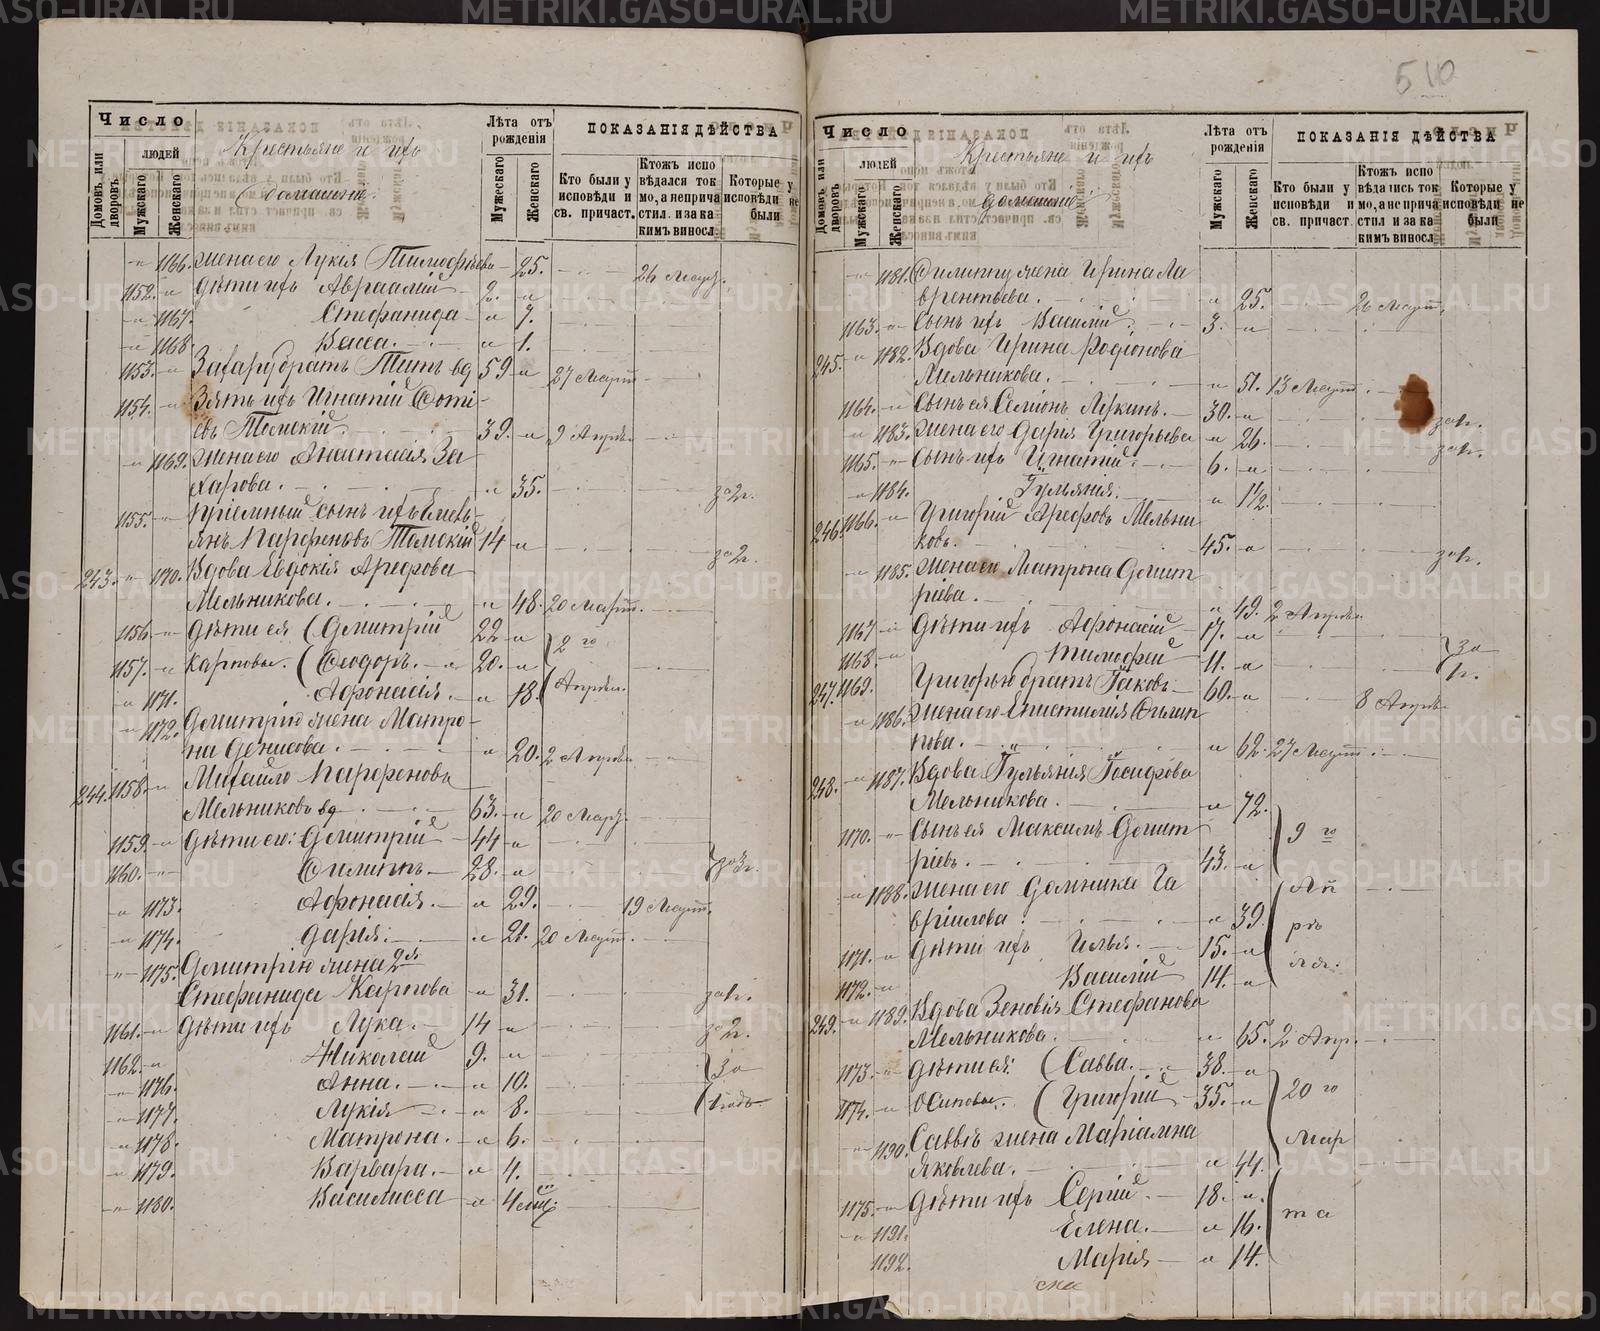 510
Число
Домовъ или дворовъ.
людей
Мужскаго
Женскаго
Крестьяне и ихъ
домашніе
Лѣта отъ рожденія
Мужескаго
Женскаго
ПОКАЗАНІЯ ДѢЙСТВА
Кто были у исповѣди и св. причаст.
Ктожъ исповѣдался токмо, а не причастил. и за какимъ виносл.
Которые у исповѣди не были
" 1166. Жена его Лукія Тимофѣева 25. 26 Март.
1152. " Дѣти ихъ Авраамій 2. "
" 1167. Стефанида " 7.
" 1168. Васса. " 1.
1153. " Захару братъ Титъ вд 59 " 27 Март.
1154. " Зять ихъ Игнатій Фоті-
евъ Томскій. 39. " 9 Апрѣл.
" 1169. Жена его Анастасія За
харова. " 35. за 2г.
1155. " Пріемный сынъ ихъ Емель-
янъ Парфеновъ Томскій 14 " за 2г.
243. " 1170. Вдова Евдокія Арефова
Мельникова. " 48. 20 Март.
1156. " Дѣти ея (Дмитрій 22 " 2 го
1157. " Карповы. (Ѳеодоръ. 20. "
" 1171. Афонасія. " 18. Апрѣля.
" 1172. Дмитрію жена Матро-
на Денисова. " 20. 2 Апрѣля
244. 1158. " Михайло Парфеновъ
Мельниковъ вд 63. " 20 Март.
1159. " Дѣти его: Дмитрій 44 "
1160. " Филиппъ 28. " за 3г.
" 1173. Афонасія. " 29. 19 Март.
" 1174. Дарія. " 21. 20 Март.
" 1175. Дмитрію жена 2я
Стефанида Карпова " 31. за 1г.
1161. " Дѣти ихъ Лука. 14 " за 2г.
1162. " Николай 9. " за
" 1176. Анна. " 10.
" 1177. Лукія " 8. 1 годъ
" 1178. Матрона. " 6.
" 1179. Варвара. " 4.
" 1180. Василисса " 4 мц.
Число
Домовъ или дворовъ.
людей
Мужскаго
Женскаго
Крестьяне и ихъ
домашніе
Лѣта отъ рожденія
Мужескаго
Женскаго
ПОКАЗАНІЯ ДѢЙСТВА
Кто были у исповѣди и св. причаст.
Ктожъ исповѣдались токмо, а не причастил. и за какимъ виносл.
Которые у исповѣди не были
" 1181. Филиппу жена Ирина Ла
врентьева. " 25. 26 Март.
1163. " Сынъ ихъ Василій. 3. "
245. " 1182. Вдова Ирина Родіонова
Мельникова. " 51. 13 Март.
1164. " Сынъ ея Семіонъ Лукинъ. 30. " за 1г.
" 1183. Жена его Дарія Григорьева " 26. за 1г.
1165. " Сынъ ихъ Игнатій. 6. "
" 1184. Іульянія. " 1½.
246. 1166. " Григорій Арефовъ Мельни
ковъ. 45. " за 1г.
" 1185. Жена его Матрона Дмит
ріева. " 49. 2 Апрѣля
1167 " Дѣти ихъ Афонасій 17. " за
1168. " Тимофей 11. " 1г.
247. 1169. Григорью братъ Іаковъ 60. " 8 Апрѣл.
" 1186. Жена его Епистимия Филип
пова. " 62. 27 Март.
248. " 1187. Вдова Іульянія Іосифова
Мельникова. " 72.
1170. " Сынъ ея Максимъ Дмит 9 го
ріевъ. 43. "
" 1188. Жена его Домника Га Ап
вріилова. " 39. рѣ
1171. " Дѣти ихъ Илья. 15. " ля.
1172. " Василій 14. "
249. " 1189. Вдова Зеновія Стефанова
Мельникова. " 65. 2 Апр.
1173. " Дѣти ея: (Савва. 38. "
1174. " Осиповы. (Григорій 35. " 20 го
" 1190. Саввѣ жена Маріамна Мар
Яковлева. " 44.
1175. " Дѣти ихъ Сергій. 18. " та
" 1191. Елена. " 16.
1192. Марія " 14.
METRIKI.GASO-URAL.RU